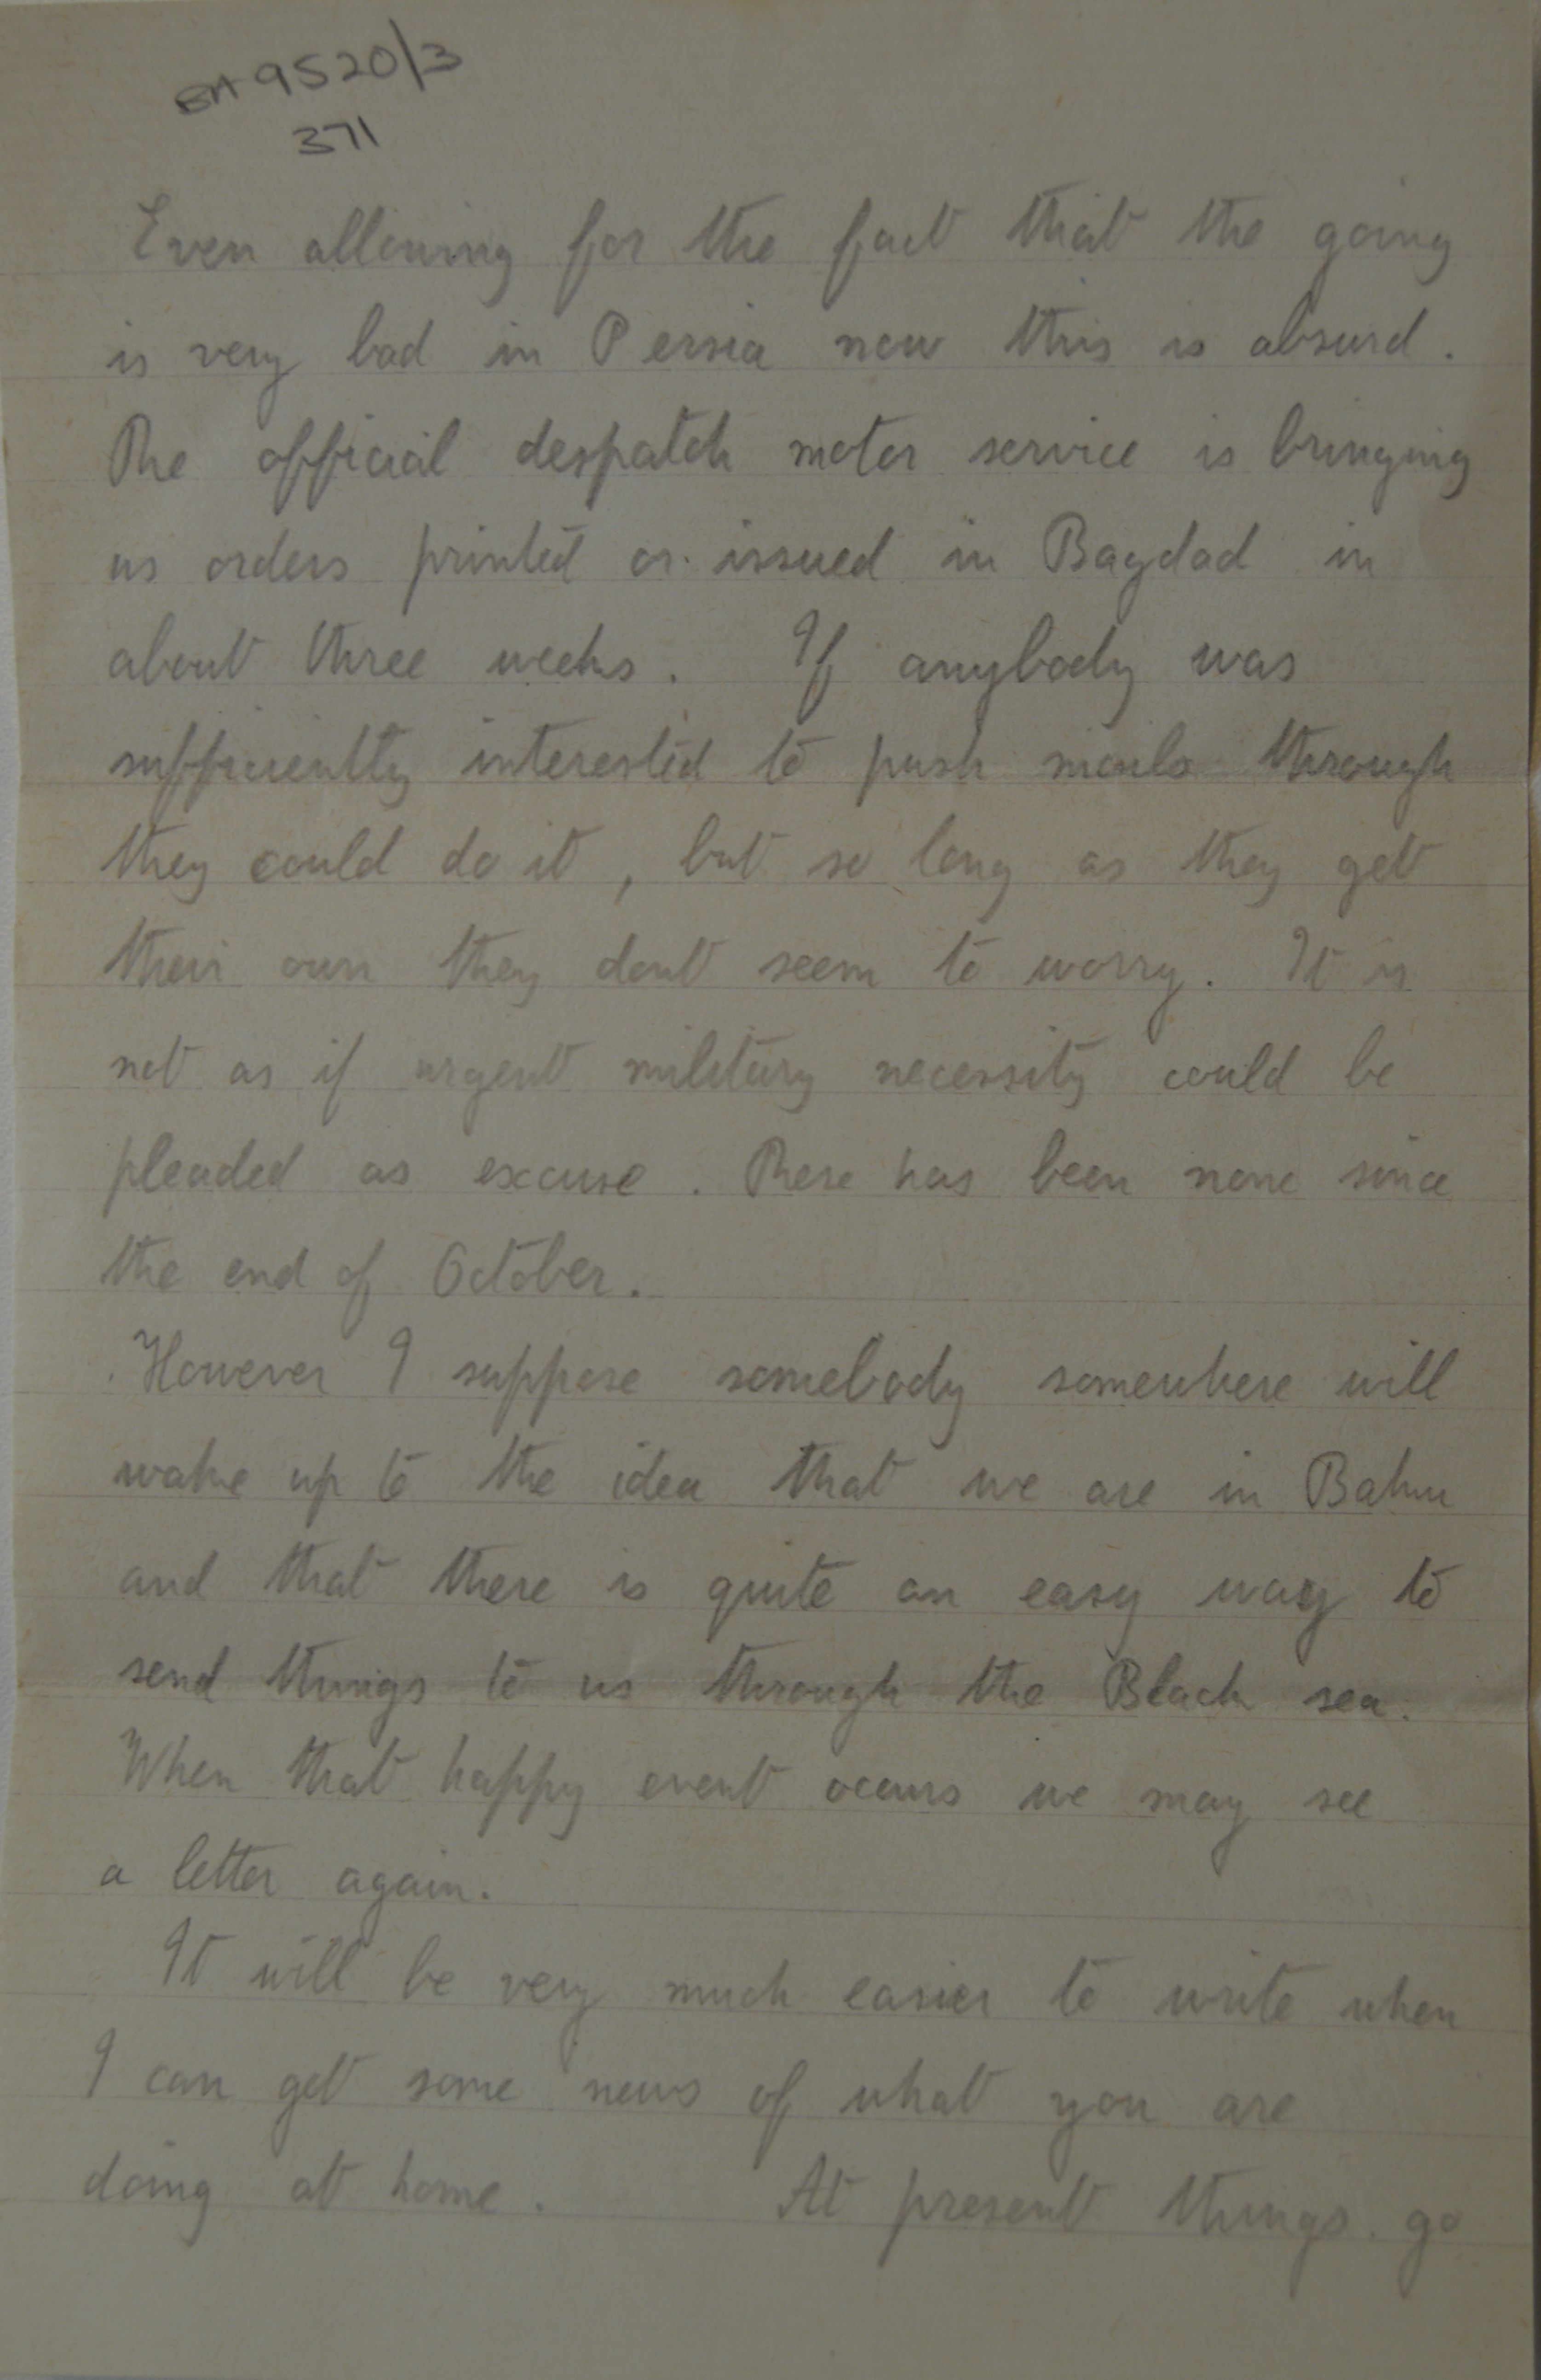 EA 9520/3
371
Even allowing for the fact that the going
is very bad in Persia now this is absurd.
The official despatch motor service is bringing
us orders printed or issued in Bagdad in
about three weeks. If anybody was
sufficiently interested to push mails through
they could do it, but so long as they get
their own they dont seem to worry. It is
not as if urgent military necessity could be
pleaded as excuse. There has been none since
the end of October.
However I suppose somebody somewhere will
wake up to the idea that we are in Baku
and that there is quite an easy way to
send things to us through the Black sea.
When that happy event occurs we may see
a letter again.
It will be very much easier to write when
I can get some news of what you are
doing at home. At present things go